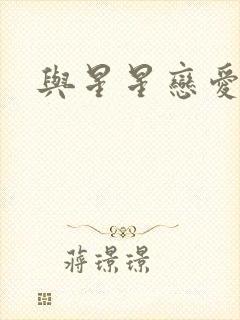 與星星戀愛
蔣璟璟